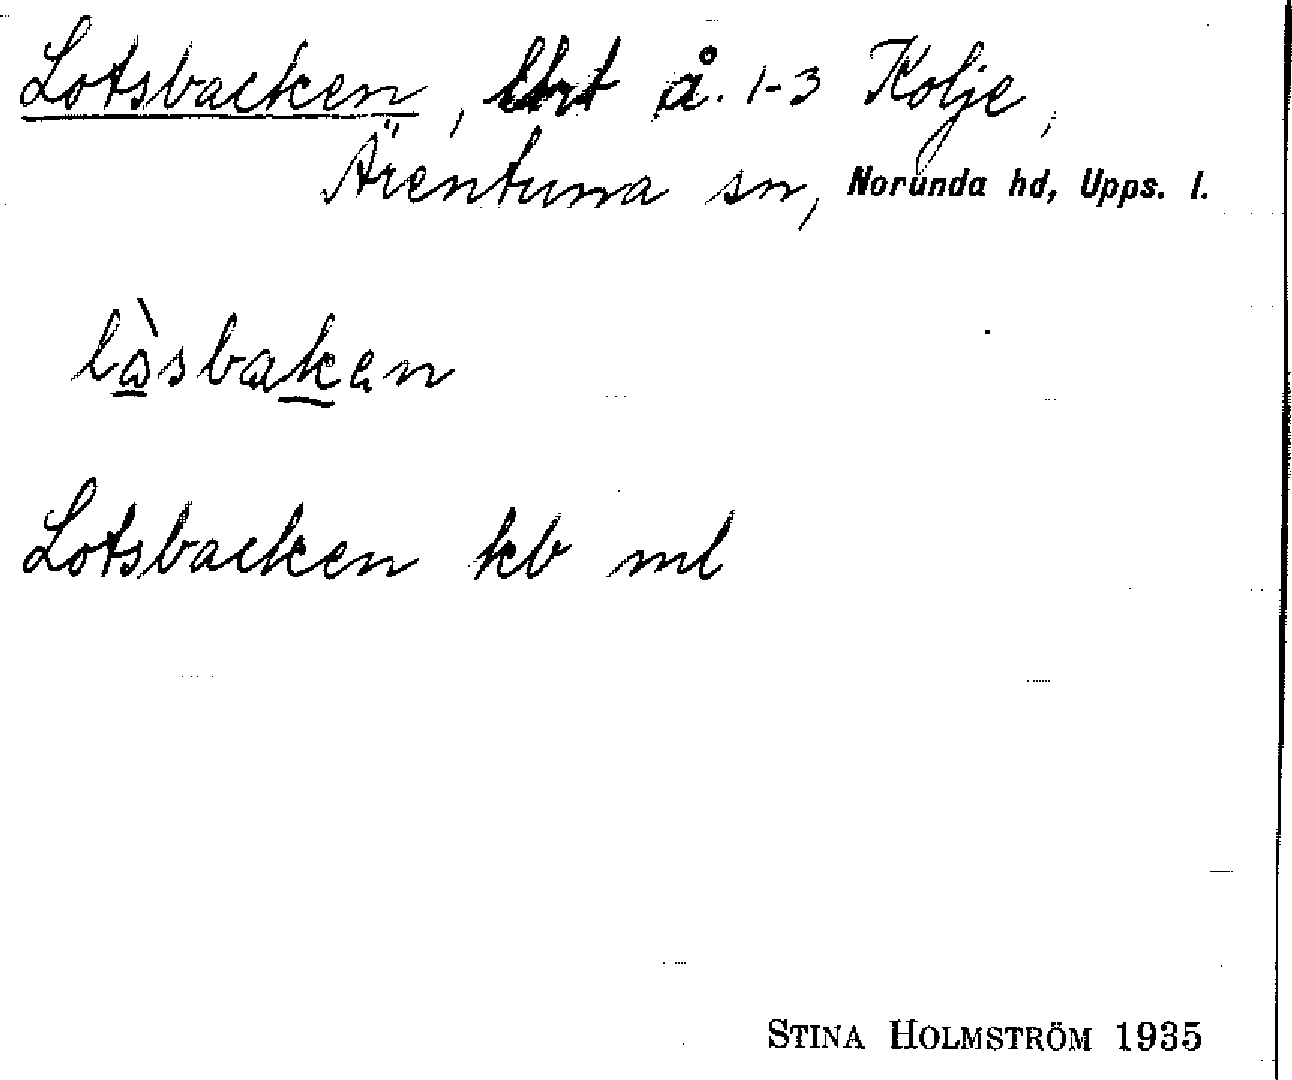 Lotsbacken, å. 1-3 Kolje,
Ärentuna sn, Norunda hd, Upps. l.
Lotsbacken kb ml
STINA HOLMSTRÖM 1935